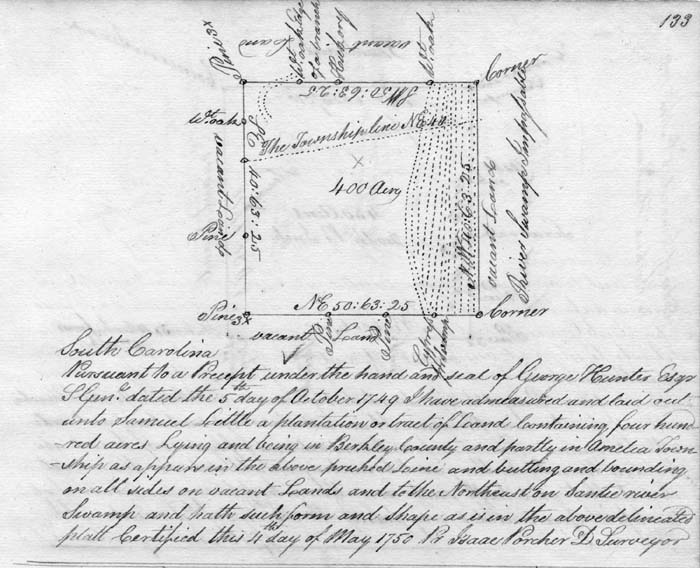 133
Pine 3x
Wt oak Edge
of a branch
Hickory
vacant Land
Wt oak
Corner
SW 50:63:25
Wt oak
The Township line NE 44
vacant Land
SE 40:63:25
400 Acrs
NW 40:63:25
vacant Land
River Swamp Impassable
Pine
Pine
3x
NE 50:63:25
Corner
vacant Land
Pine
Pine
Cypress
in Swamp
South Carolina
Pursuant to a Precept under the hand and seal of George Hunter Esqr
S Genl. dated the 5th day of October 1749 I have admeasured and laid out
unto Samuel Little a plantation or tract of Land Containing four hun
dred acres Lying and being in Berkley County and partly in Amelia Town
ship as appears in the above pricked Line and butting and bounding
on all sides on vacant Lands and to the Northeast on Santee river
Swamp and hath such form and shape as is in the above delineated
platt Certified this 4th day of May 1750 Pr Isaac Porcher D Surveyor